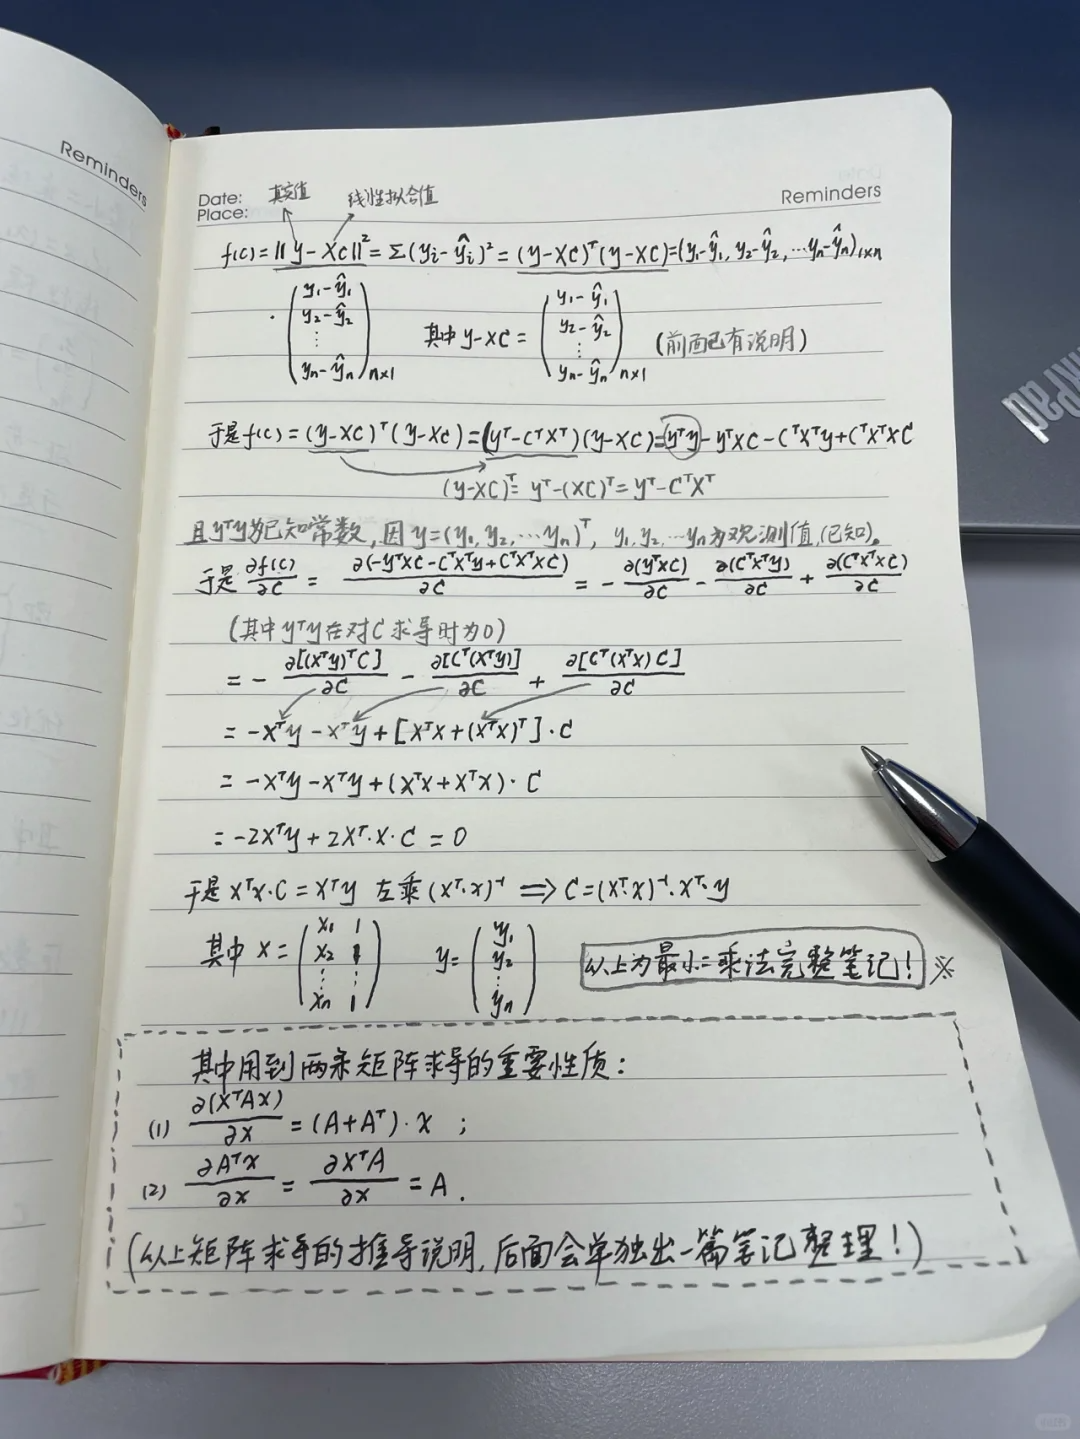 Reminders
Date:
Place:
真实值 线性拟合值
Reminders
f(C)=||y-XC||²=Σ(yi-ŷi)²=(y-XC)ᵀ(y-XC)=(y₁-ŷ₁, y₂-ŷ₂, …yn-ŷn)₁×n
· (y₁-ŷ₁ y₂-ŷ₂ ⋮ yn-ŷn)n×1 其中 y-XC = (y₁-ŷ₁ y₂-ŷ₂ ⋮ yn-ŷn)n×1 (前面已有说明)
于是f(C)=(y-XC)ᵀ(y-XC)=(yᵀ-CᵀXᵀ)(y-XC)=yᵀy-yᵀXC-CᵀXᵀy+CᵀXᵀXC
(y-XC)ᵀ=yᵀ-(XC)ᵀ=yᵀ-CᵀXᵀ
且yᵀy为已知常数,因y=(y₁,y₂,…yn)ᵀ, y₁,y₂,…yn为观测值,(已知)。
于是 ∂f(C)/∂C = ∂(-yᵀXC-CᵀXᵀy+CᵀXᵀXC)/∂C = -∂(yᵀXC)/∂C - ∂(CᵀXᵀy)/∂C + ∂(CᵀXᵀXC)/∂C
(其中yᵀy在对C求导时为0)
= -∂[(Xᵀy)ᵀC]/∂C - ∂[Cᵀ(Xᵀy)]/∂C + ∂[Cᵀ(XᵀX)C]/∂C
= -Xᵀy-Xᵀy+[XᵀX+(XᵀX)ᵀ]·C
= -Xᵀy-Xᵀy+(XᵀX+XᵀX)·C
= -2Xᵀy+2Xᵀ·X·C = 0
于是 XᵀX·C=Xᵀy 左乘(Xᵀ·X)⁻¹ ⟹ C=(Xᵀ·X)⁻¹·Xᵀ·y
其中 X=(x₁ 1 x₂ 1 ⋮ ⋮ xn 1) y=(y₁ y₂ ⋮ yn) 以上为最小二乘法完整笔记! ※
其中用到两条矩阵求导的重要性质:
(1) ∂(XᵀAX)/∂X = (A+Aᵀ)·X ;
(2) ∂AᵀX/∂X = ∂XᵀA/∂X = A .
(以上矩阵求导的推导说明,后面会单独出一篇笔记整理!)